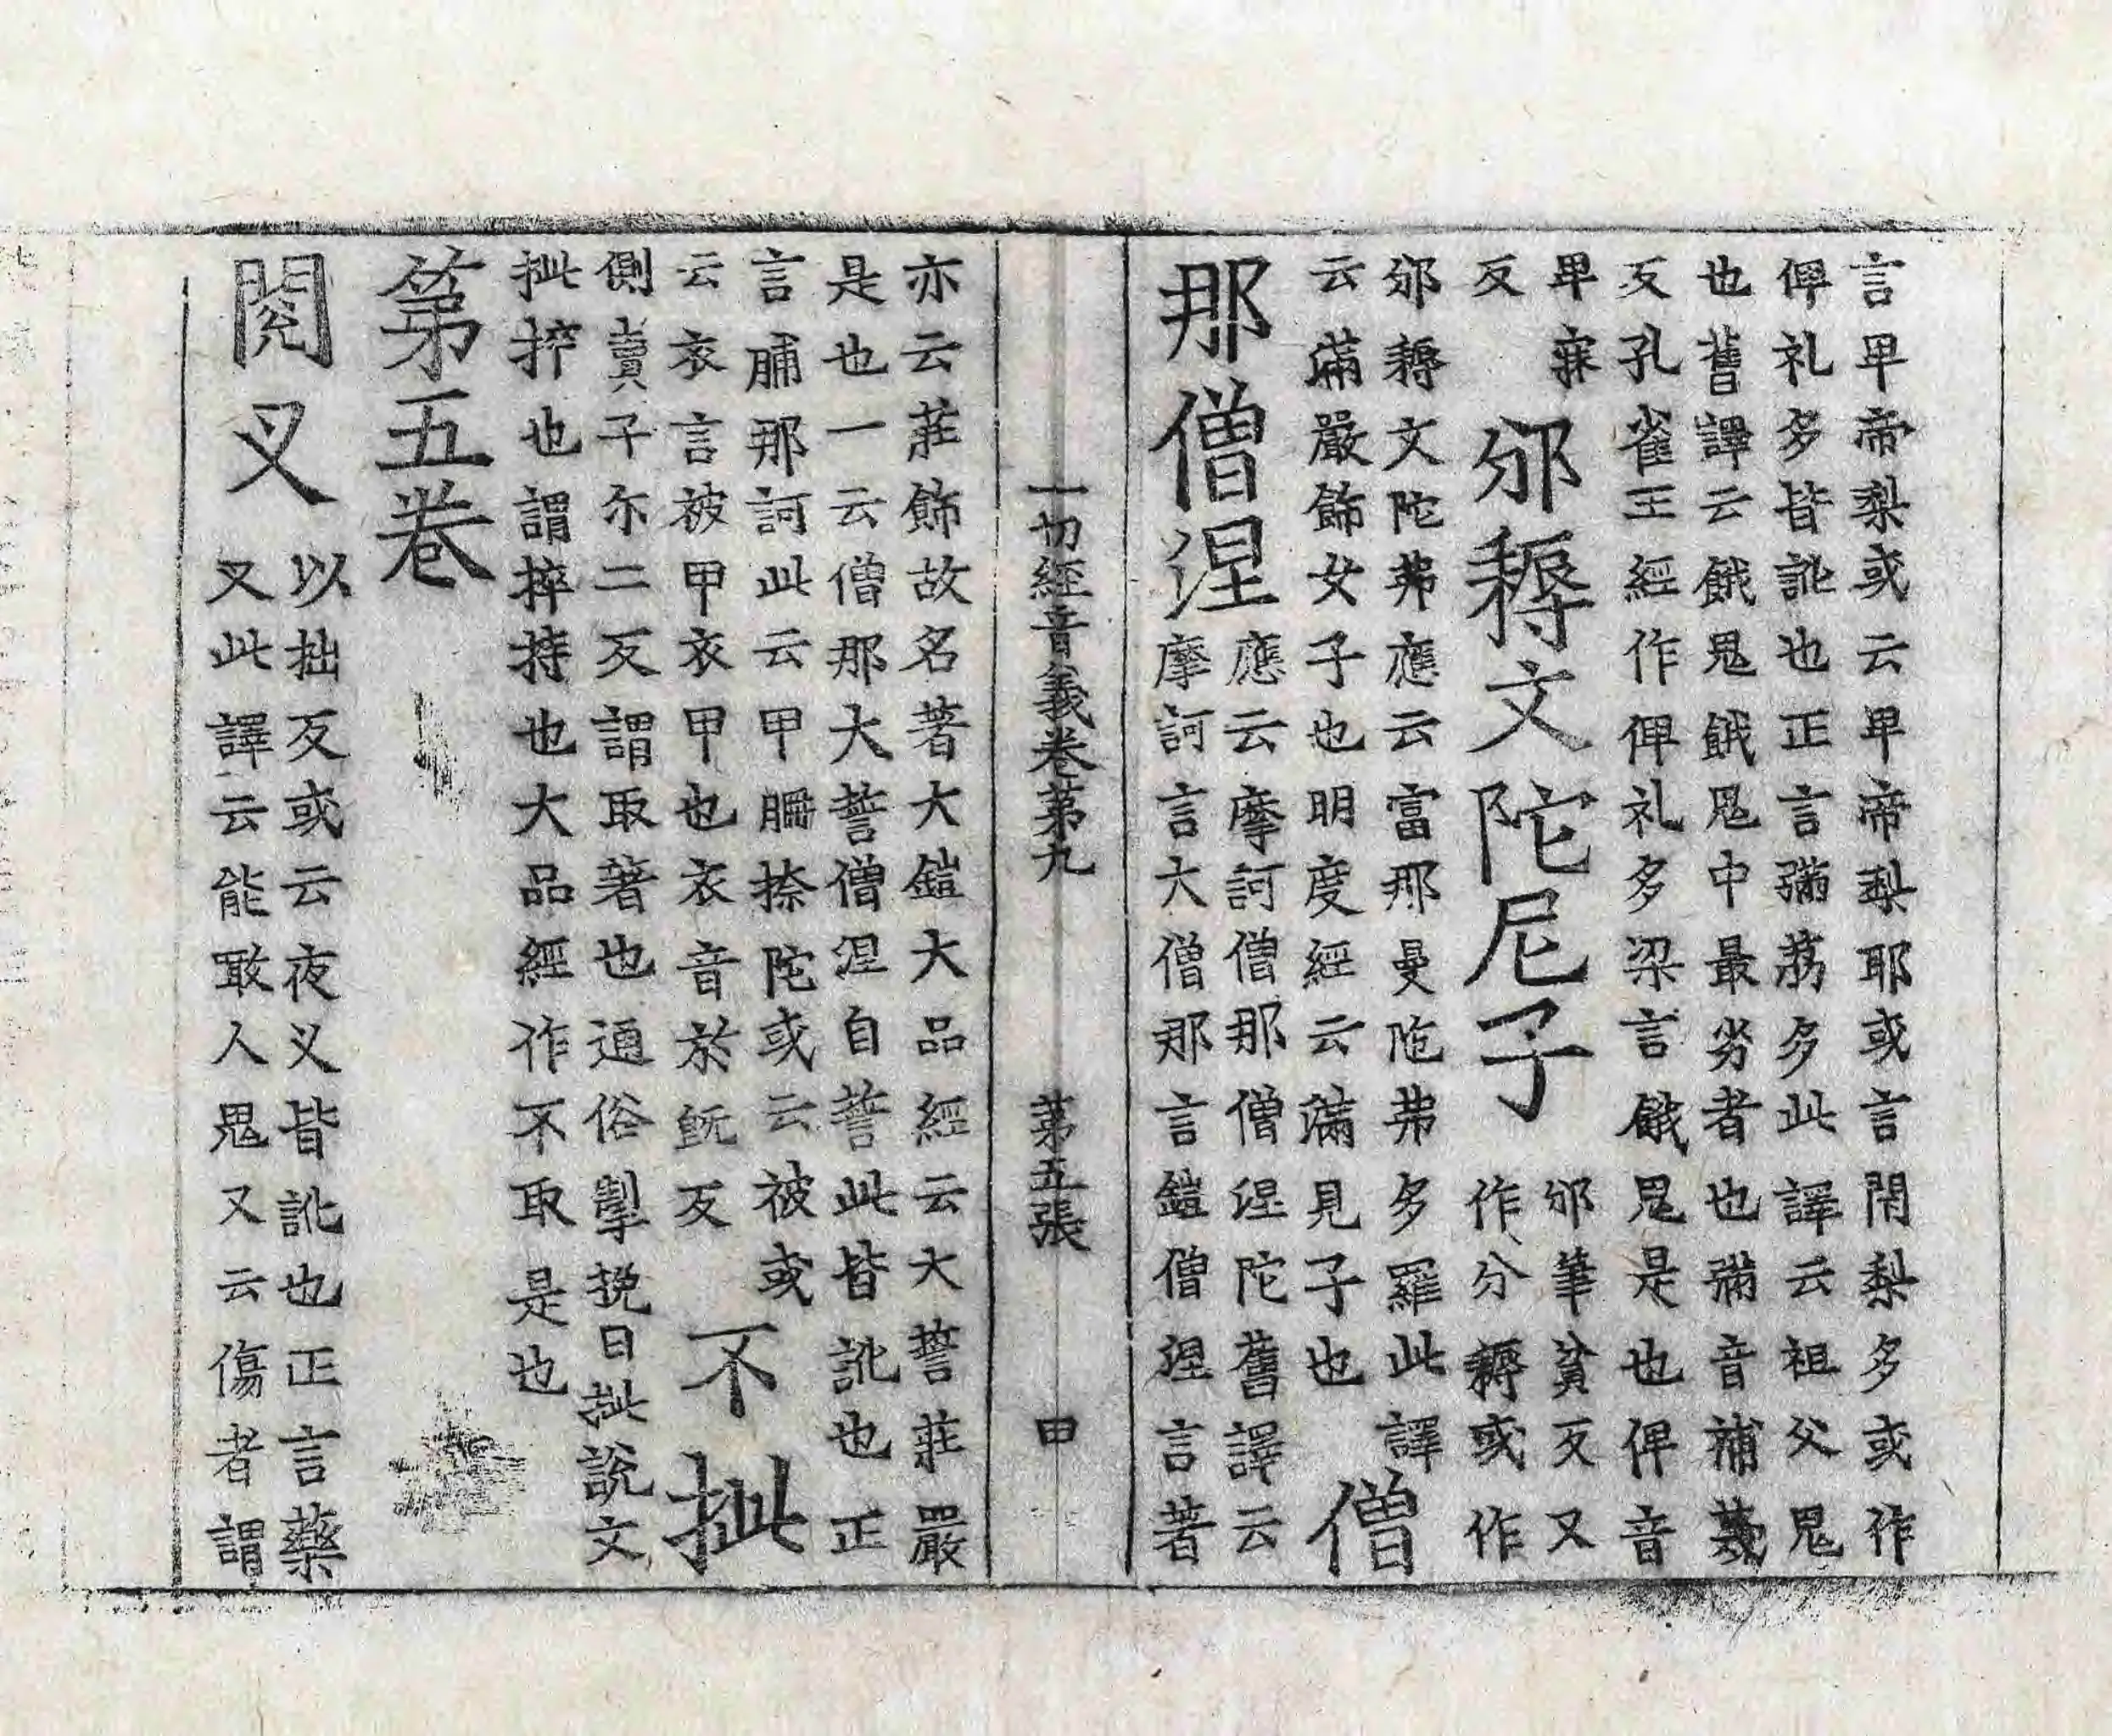 言卑帝梨或云卑帝梨耶或言閇梨多或作
俾礼多皆訛也正言彌茘多此譯云祖父鬼
也舊譯云餓鬼餓鬼中最劣者也彌音補蔑
反孔雀王經作俾礼多梁言餓鬼是也俾音
卑寐
反
邠耨文陀尼子
邠筆貧反又
作分耨或作
邠耨文陀弗應云富那曼陁弗多羅此譯
云滿嚴飾女子也明度經云滿見子也
僧
那僧涅
應云摩訶僧那僧涅陀舊譯云
摩訶言大僧那言鎧僧涅言著
一切經音義卷第九 第五張 甲
亦云莊飾故名著大鎧大品經云大誓莊嚴
是也一云僧那大誓僧涅自誓此皆訛也正
言那訶此云甲捺陀或云被或
云衣言被甲衣甲也衣音於旣反
不㧗
側賣子尒二反謂取著也通俗掣挽曰㧗說文
㧗捽也謂捽持也大品經作不取是也
第五卷
閱叉
以拙反或云夜叉皆訛也正言藥
叉此譯云能噉人鬼又云傷者謂